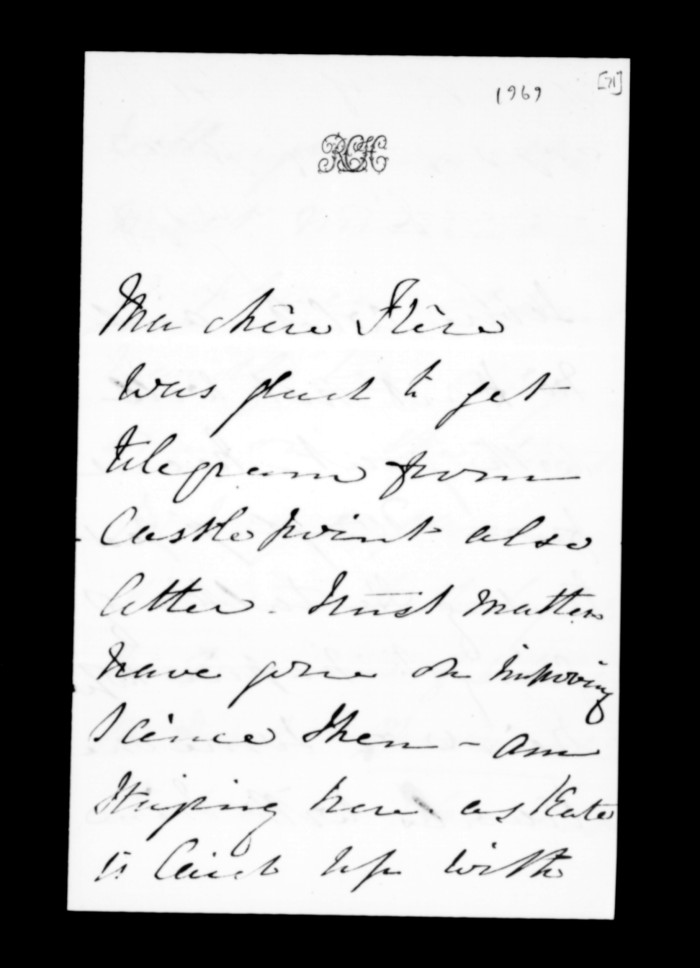 1969
[71]
RCH
Ma chère Frère
Was glad to get
telegram from
Castle point also
letter. Trust matters
have gone on improving
Science then - am
Staiping here as Kate
is laid up with